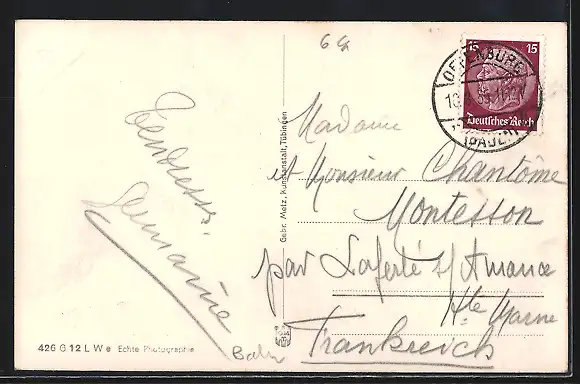 6 G
15 15
OFFENBURG
Deutsches Reich
(BADEN)
Tendresses.
Germaine
Madame
et Monsieur Chantôme
Montesson
par Laferté s/Amance
Hte Marne
Frankreich
Gebr. Metz, Kunstanstalt, Tübingen
426 G 12 L W e Echte Photographie